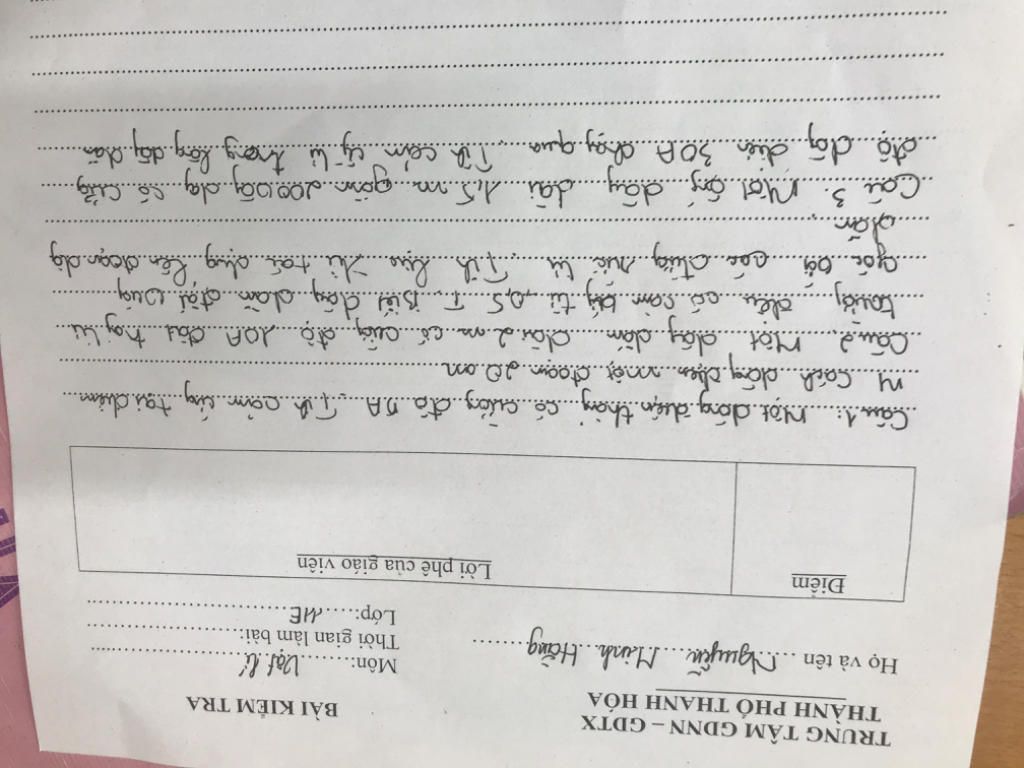 TRUNG TÂM GDNN – GDTX
THÀNH PHỐ THANH HÓA
BÀI KIỂM TRA
Họ và tên ....Nguyễn....Minh..Hằng........
Môn:........Vật lí.................
Thời gian làm bài:....................
Lớp:......11E...........................
Điểm
Lời phê của giáo viên
Câu 1: Một dòng điện thẳng có cường độ 5A. Tính cảm ứng tại điểm
M cách dòng điện một đoạn 20 cm
Câu 2. Một dây dẫn dài 2 m có cường độ 10A đặt trong từ
trường đều có cảm ứng từ 0,5 T. Biết dây dẫn đặt vuông
góc với các đường sức từ. Tính lực từ tác dụng lên đoạn dây
dẫn.
Câu 3. Một ống dây dài 1,5 m gồm 200 vòng dây có cường
độ dòng điện 30A chạy qua. Tính cảm ứng từ trong lòng dây dẫn